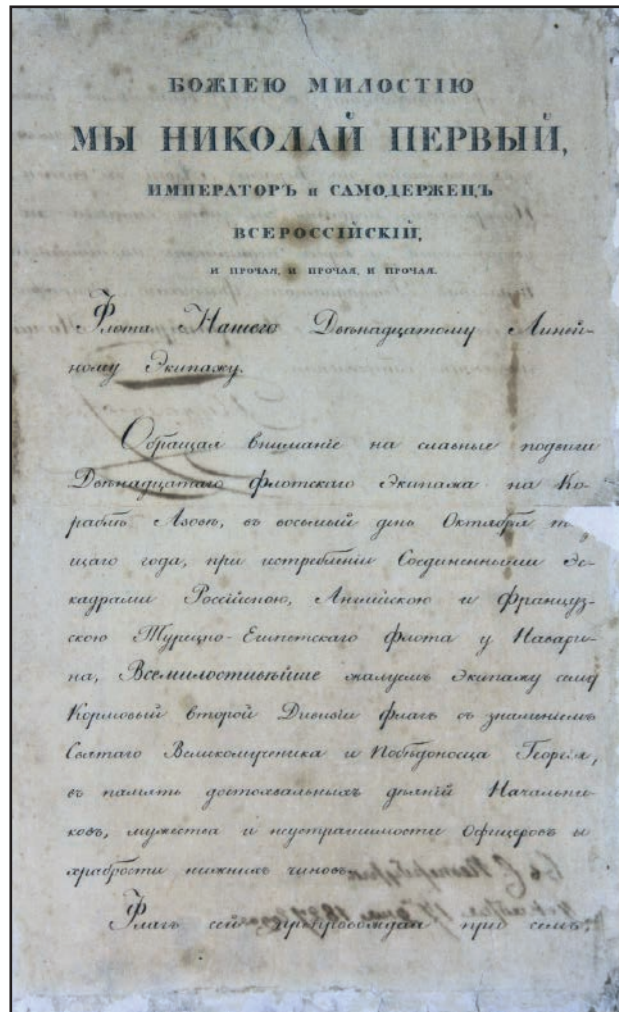 БОЖІЕЮ МИЛОСТІЮ
МЫ НИКОЛАЙ ПЕРВЫЙ,
ИМПЕРАТОРЪ и САМОДЕРЖЕЦЪ
ВСЕРОССІЙСКІЙ,
И ПРОЧАЯ, И ПРОЧАЯ, И ПРОЧАЯ.
Флота Нашего Двѣнадцатому Линей-
ному Экипажу.
Обращая вниманіе на славные подвиги
Двѣнадцатаго флотскаго Экипажа на Ко-
раблѣ Азовѣ, въ восьмый день Октября
щаго года, при истребленіи Соединенными Эс-
кадрами Россійскою, Англійскою и Француз-
скою Турецко-Египетскаго флота у Навари-
на, Всемилостивѣйше жалуемъ Экипажу сему
Кормовый второй Дивизіи флагъ съ знаменіемъ
Святаго Великомученика и Побѣдоносца Георгія,
въ память достохвальныхъ дѣяній Начальни-
ковъ, мужества и неустрашимости Офицеровъ и
храбрости нижнихъ чиновъ.
Флагъ сей препровождая при семъ,